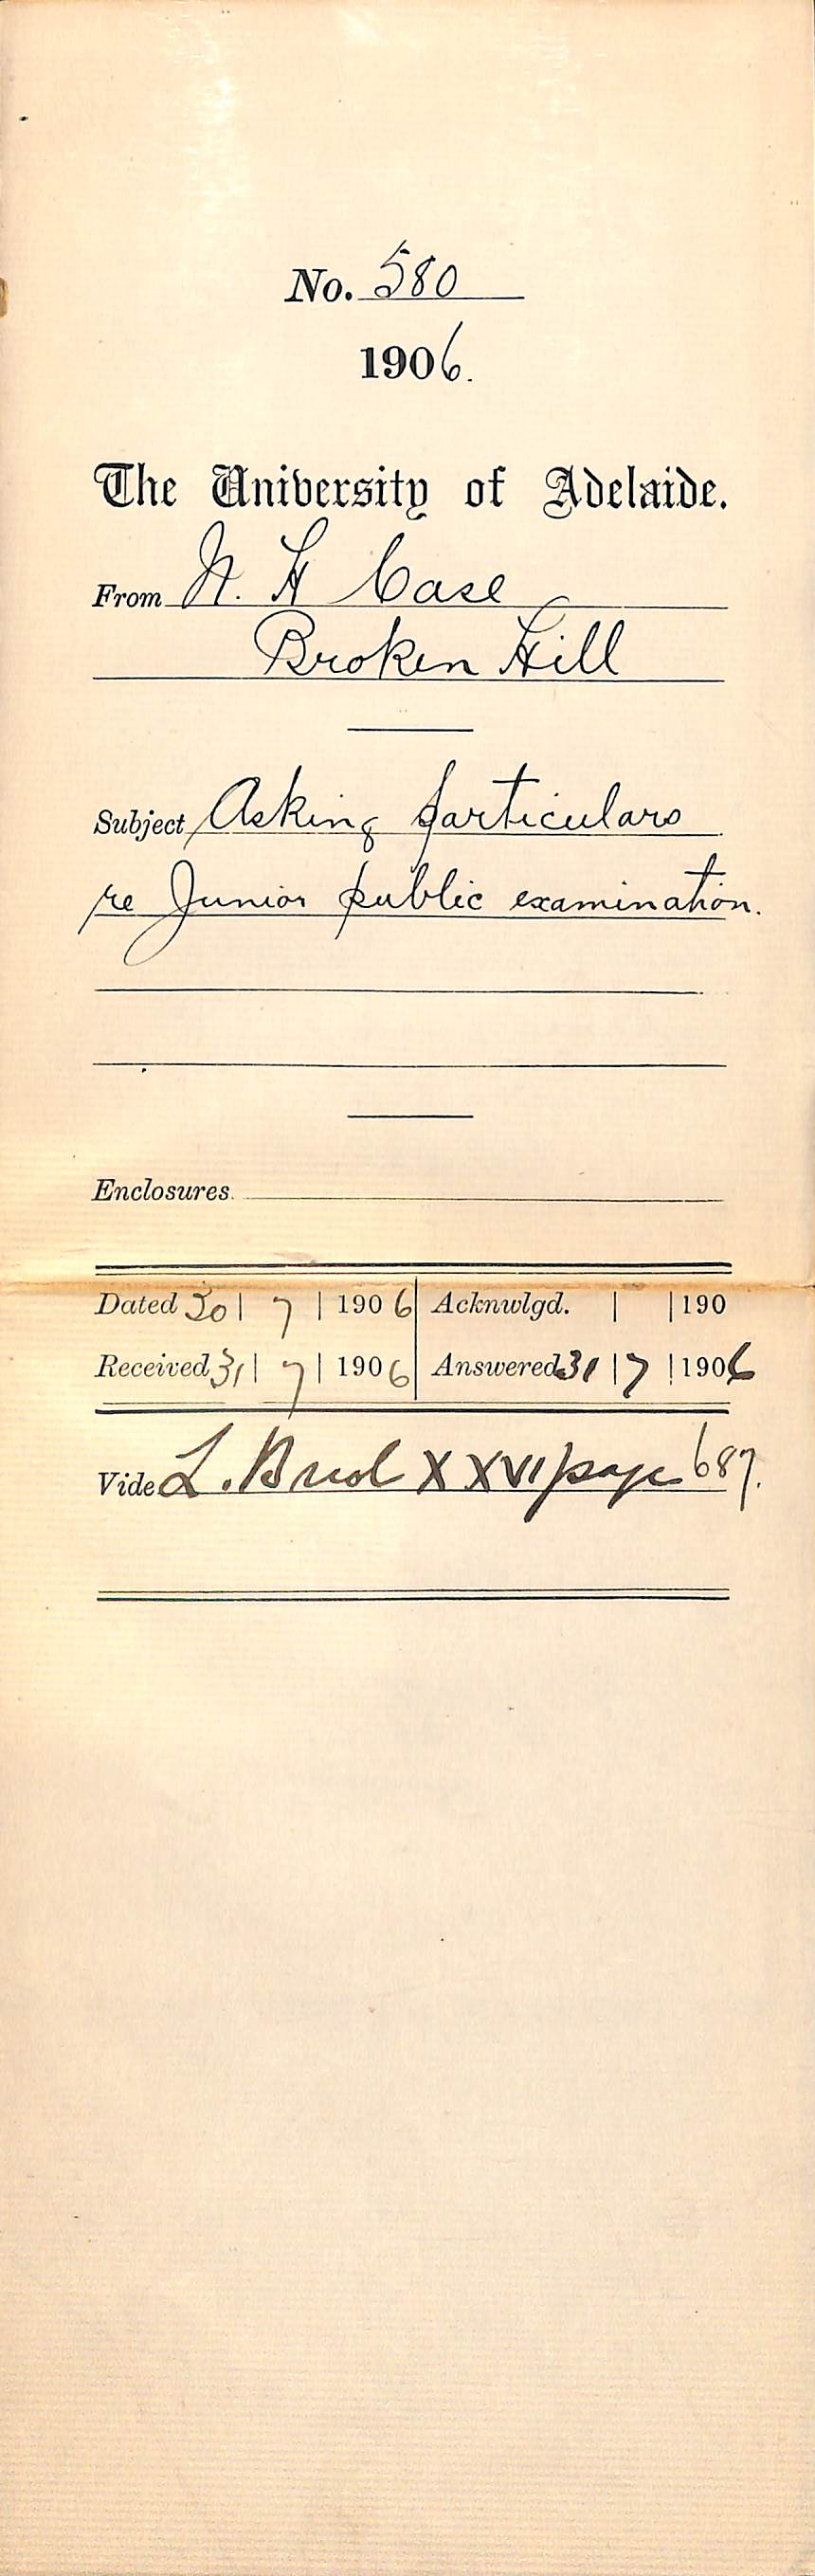 No. 580
1906.
The University of Adelaide.
From N. H Case
Broken Hill
Subject Asking particulars
re Junior public examination.
Enclosures.
Dated 30 | 7 | 1906 Acknwlgd. | | 190
Received 31 | 7 | 1906 Answered 31 | 7 | 1906
Vide L. XXVI page 687.